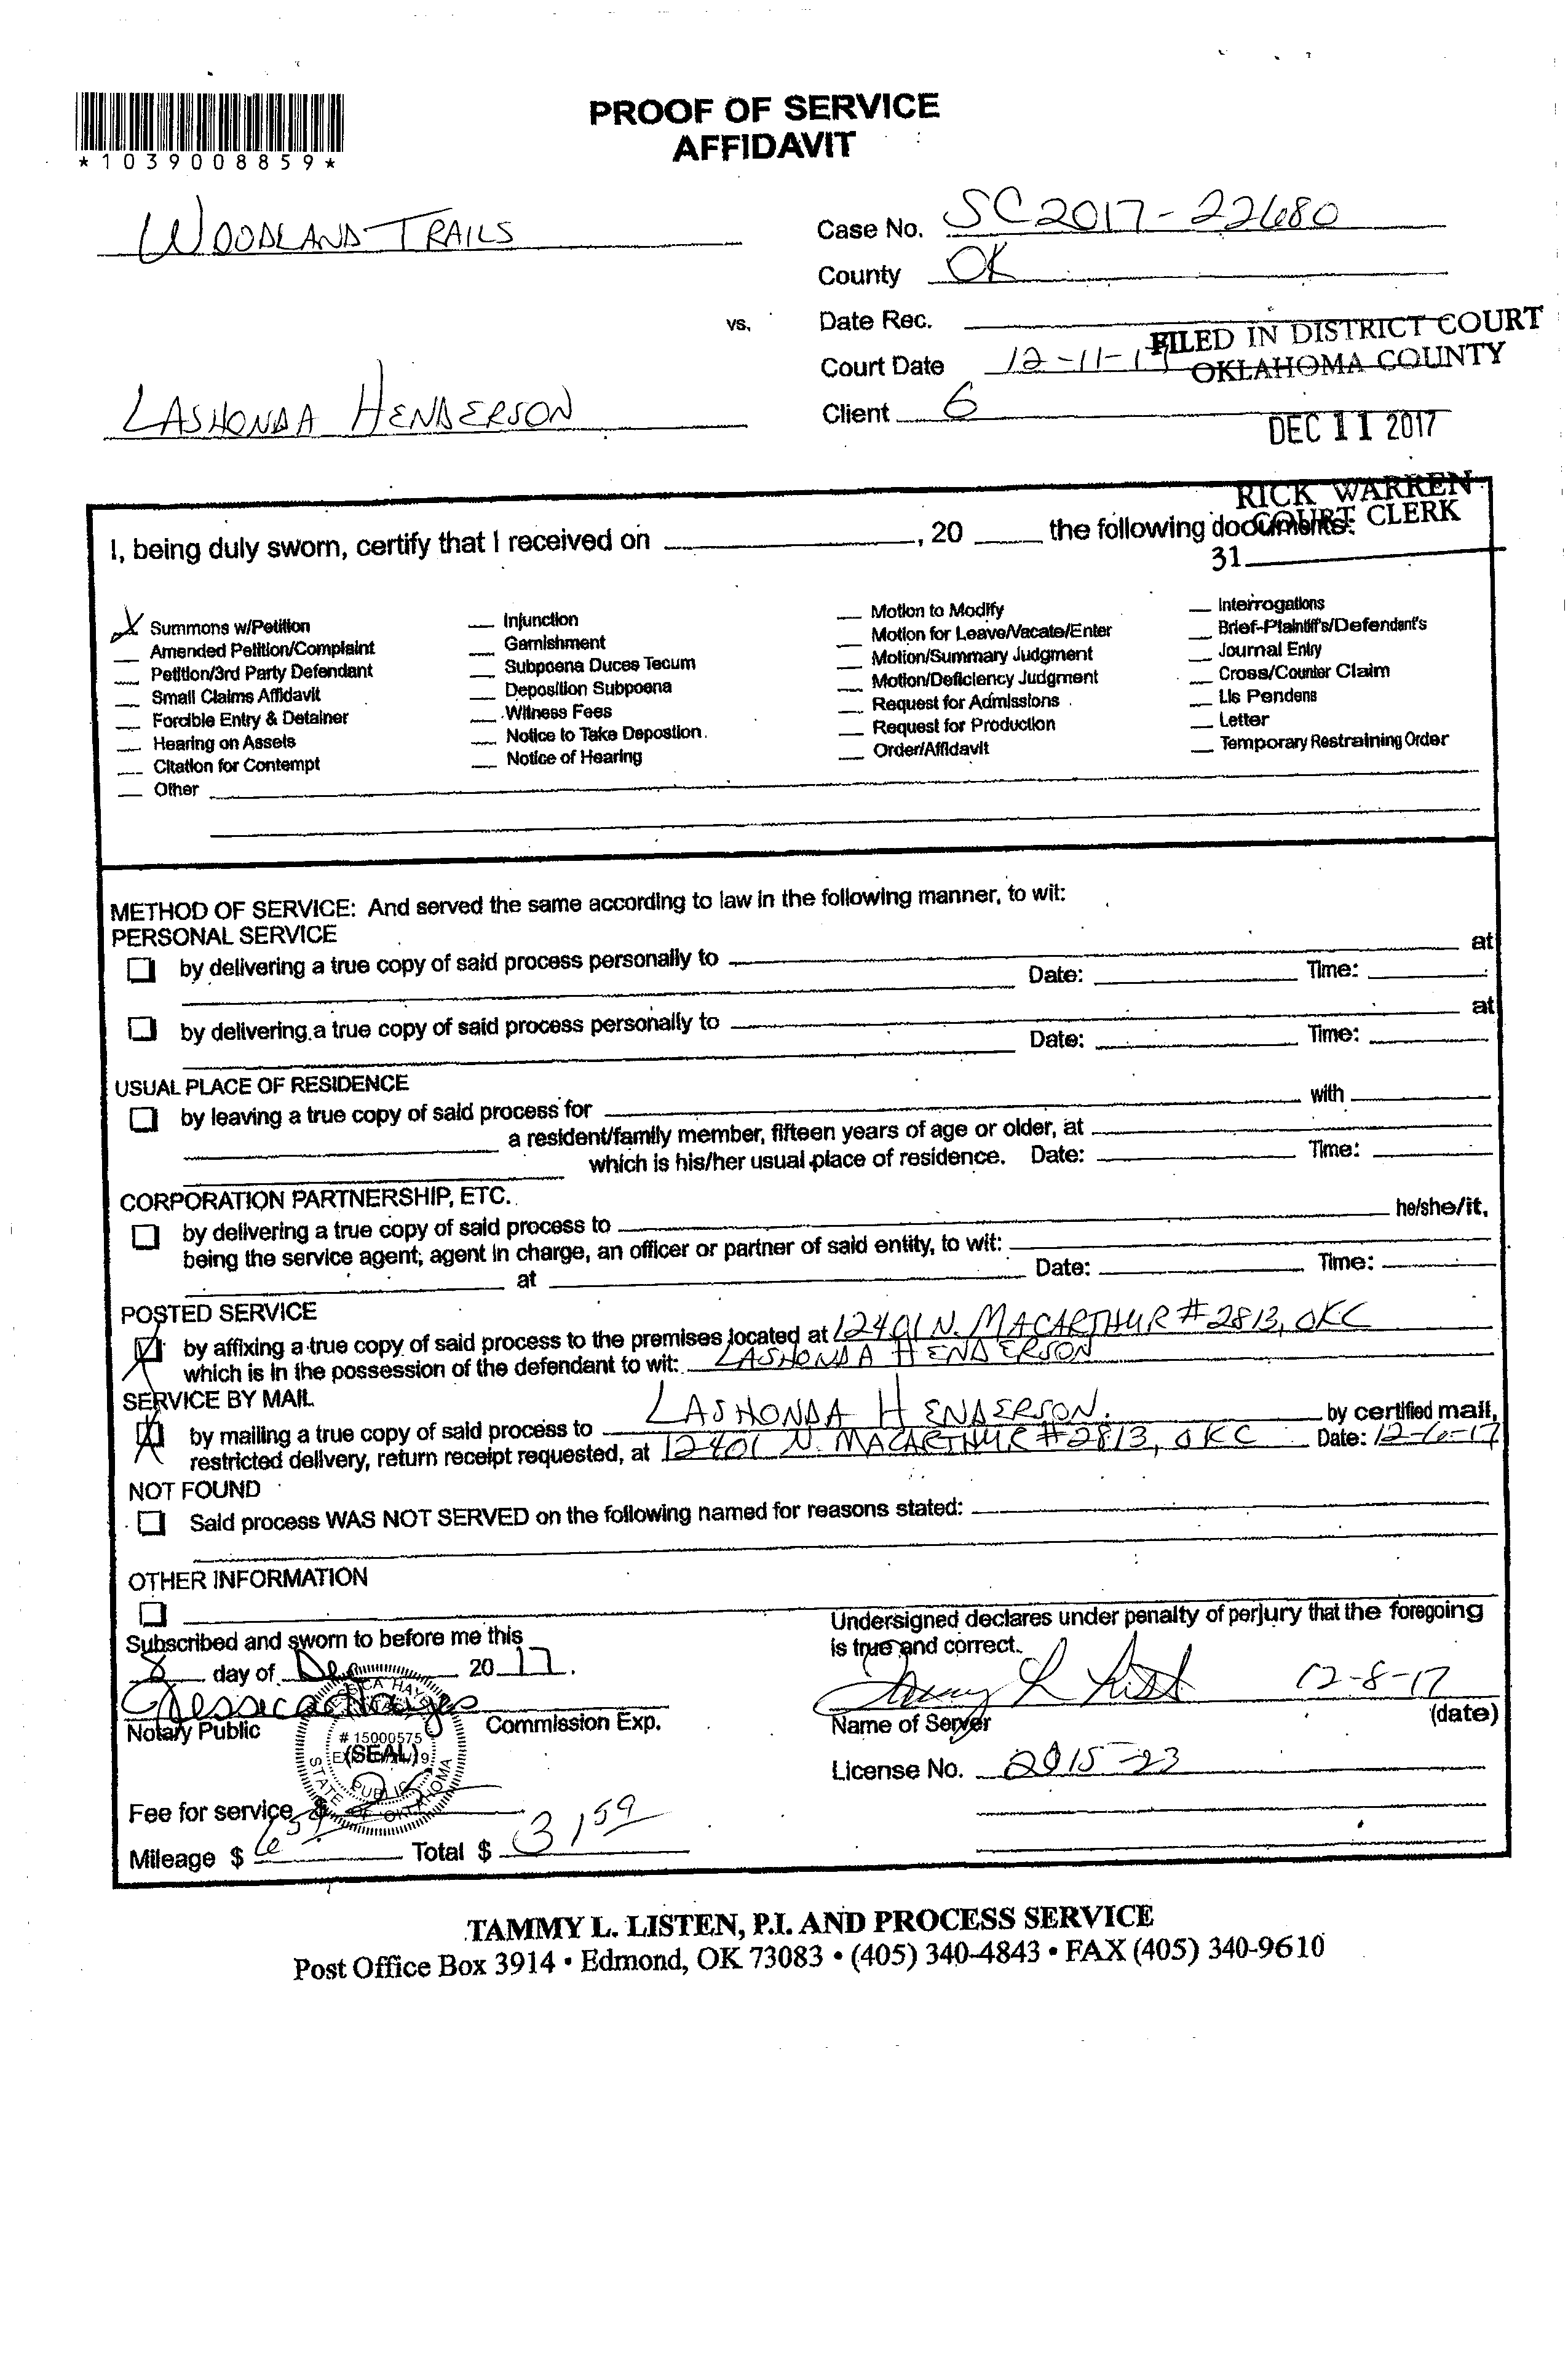 PROOF OF SERVICE
AFFIDAVIT
*1039008859*
WOODLAND TRAILS
Case No. SC2017-22680
County OK
vs.
Date Rec.
FILED IN DISTRICT COURT
OKLAHOMA COUNTY
Court Date 12-11-17
LASHONDA HENDERSON
Client 6
DEC 11 2017
RICK WARREN
COURT CLERK
31
I, being duly sworn, certify that I received on , 20 the following documents:
X Summons w/Petition
Amended Petition/Complaint
Petition/3rd Party Defendant
Small Claims Affidavit
Forcible Entry & Detainer
Hearing on Assets
Citation for Contempt
Other
Injunction
Garnishment
Subpoena Duces Tecum
Deposition Subpoena
Witness Fees
Notice to Take Depostion
Notice of Hearing
Motion to Modify
Motion for Leave/Vacate/Enter
Motion/Summary Judgment
Motion/Deficiency Judgment
Request for Admissions
Request for Production
Order/Affidavit
Interrogations
Brief-Plaintiff's/Defendant's
Journal Entry
Cross/Counter Claim
Lis Pendens
Letter
Temporary Restraining Order
METHOD OF SERVICE: And served the same according to law in the following manner, to wit:
PERSONAL SERVICE
by delivering a true copy of said process personally to at
Date: Time:
by delivering a true copy of said process personally to at
Date: Time:
USUAL PLACE OF RESIDENCE
by leaving a true copy of said process for with
a resident/family member, fifteen years of age or older, at
which is his/her usual place of residence. Date: Time:
CORPORATION PARTNERSHIP, ETC.
by delivering a true copy of said process to he/she/it,
being the service agent, agent in charge, an officer or partner of said entity, to wit:
at Date: Time:
POSTED SERVICE
by affixing a true copy of said process to the premises located at 12401 N. MACARTHUR #2813, OKC
which is in the possession of the defendant to wit: LASHONDA HENDERSON
SERVICE BY MAIL
by mailing a true copy of said process to LASHONDA HENDERSON by certified mail,
restricted delivery, return receipt requested, at 12401 N. MACARTHUR #2813, OKC Date: 12-6-17
NOT FOUND
Said process WAS NOT SERVED on the following named for reasons stated:
OTHER INFORMATION
Subscribed and sworn to before me this
8 day of Dec 2017.
Jessica Hayes
Notary Public Commission Exp.
# 15000575
(SEAL)
PUBLIC
STATE OF OKLAHOMA
Undersigned declares under penalty of perjury that the foregoing
is true and correct.
12-8-17
Name of Server (date)
License No. 2015-23
Fee for service $ 25
Mileage $ 6 59 Total $ 31 59
TAMMY L. LISTEN, P.I. AND PROCESS SERVICE
Post Office Box 3914 • Edmond, OK 73083 • (405) 340-4843 • FAX (405) 340-9610